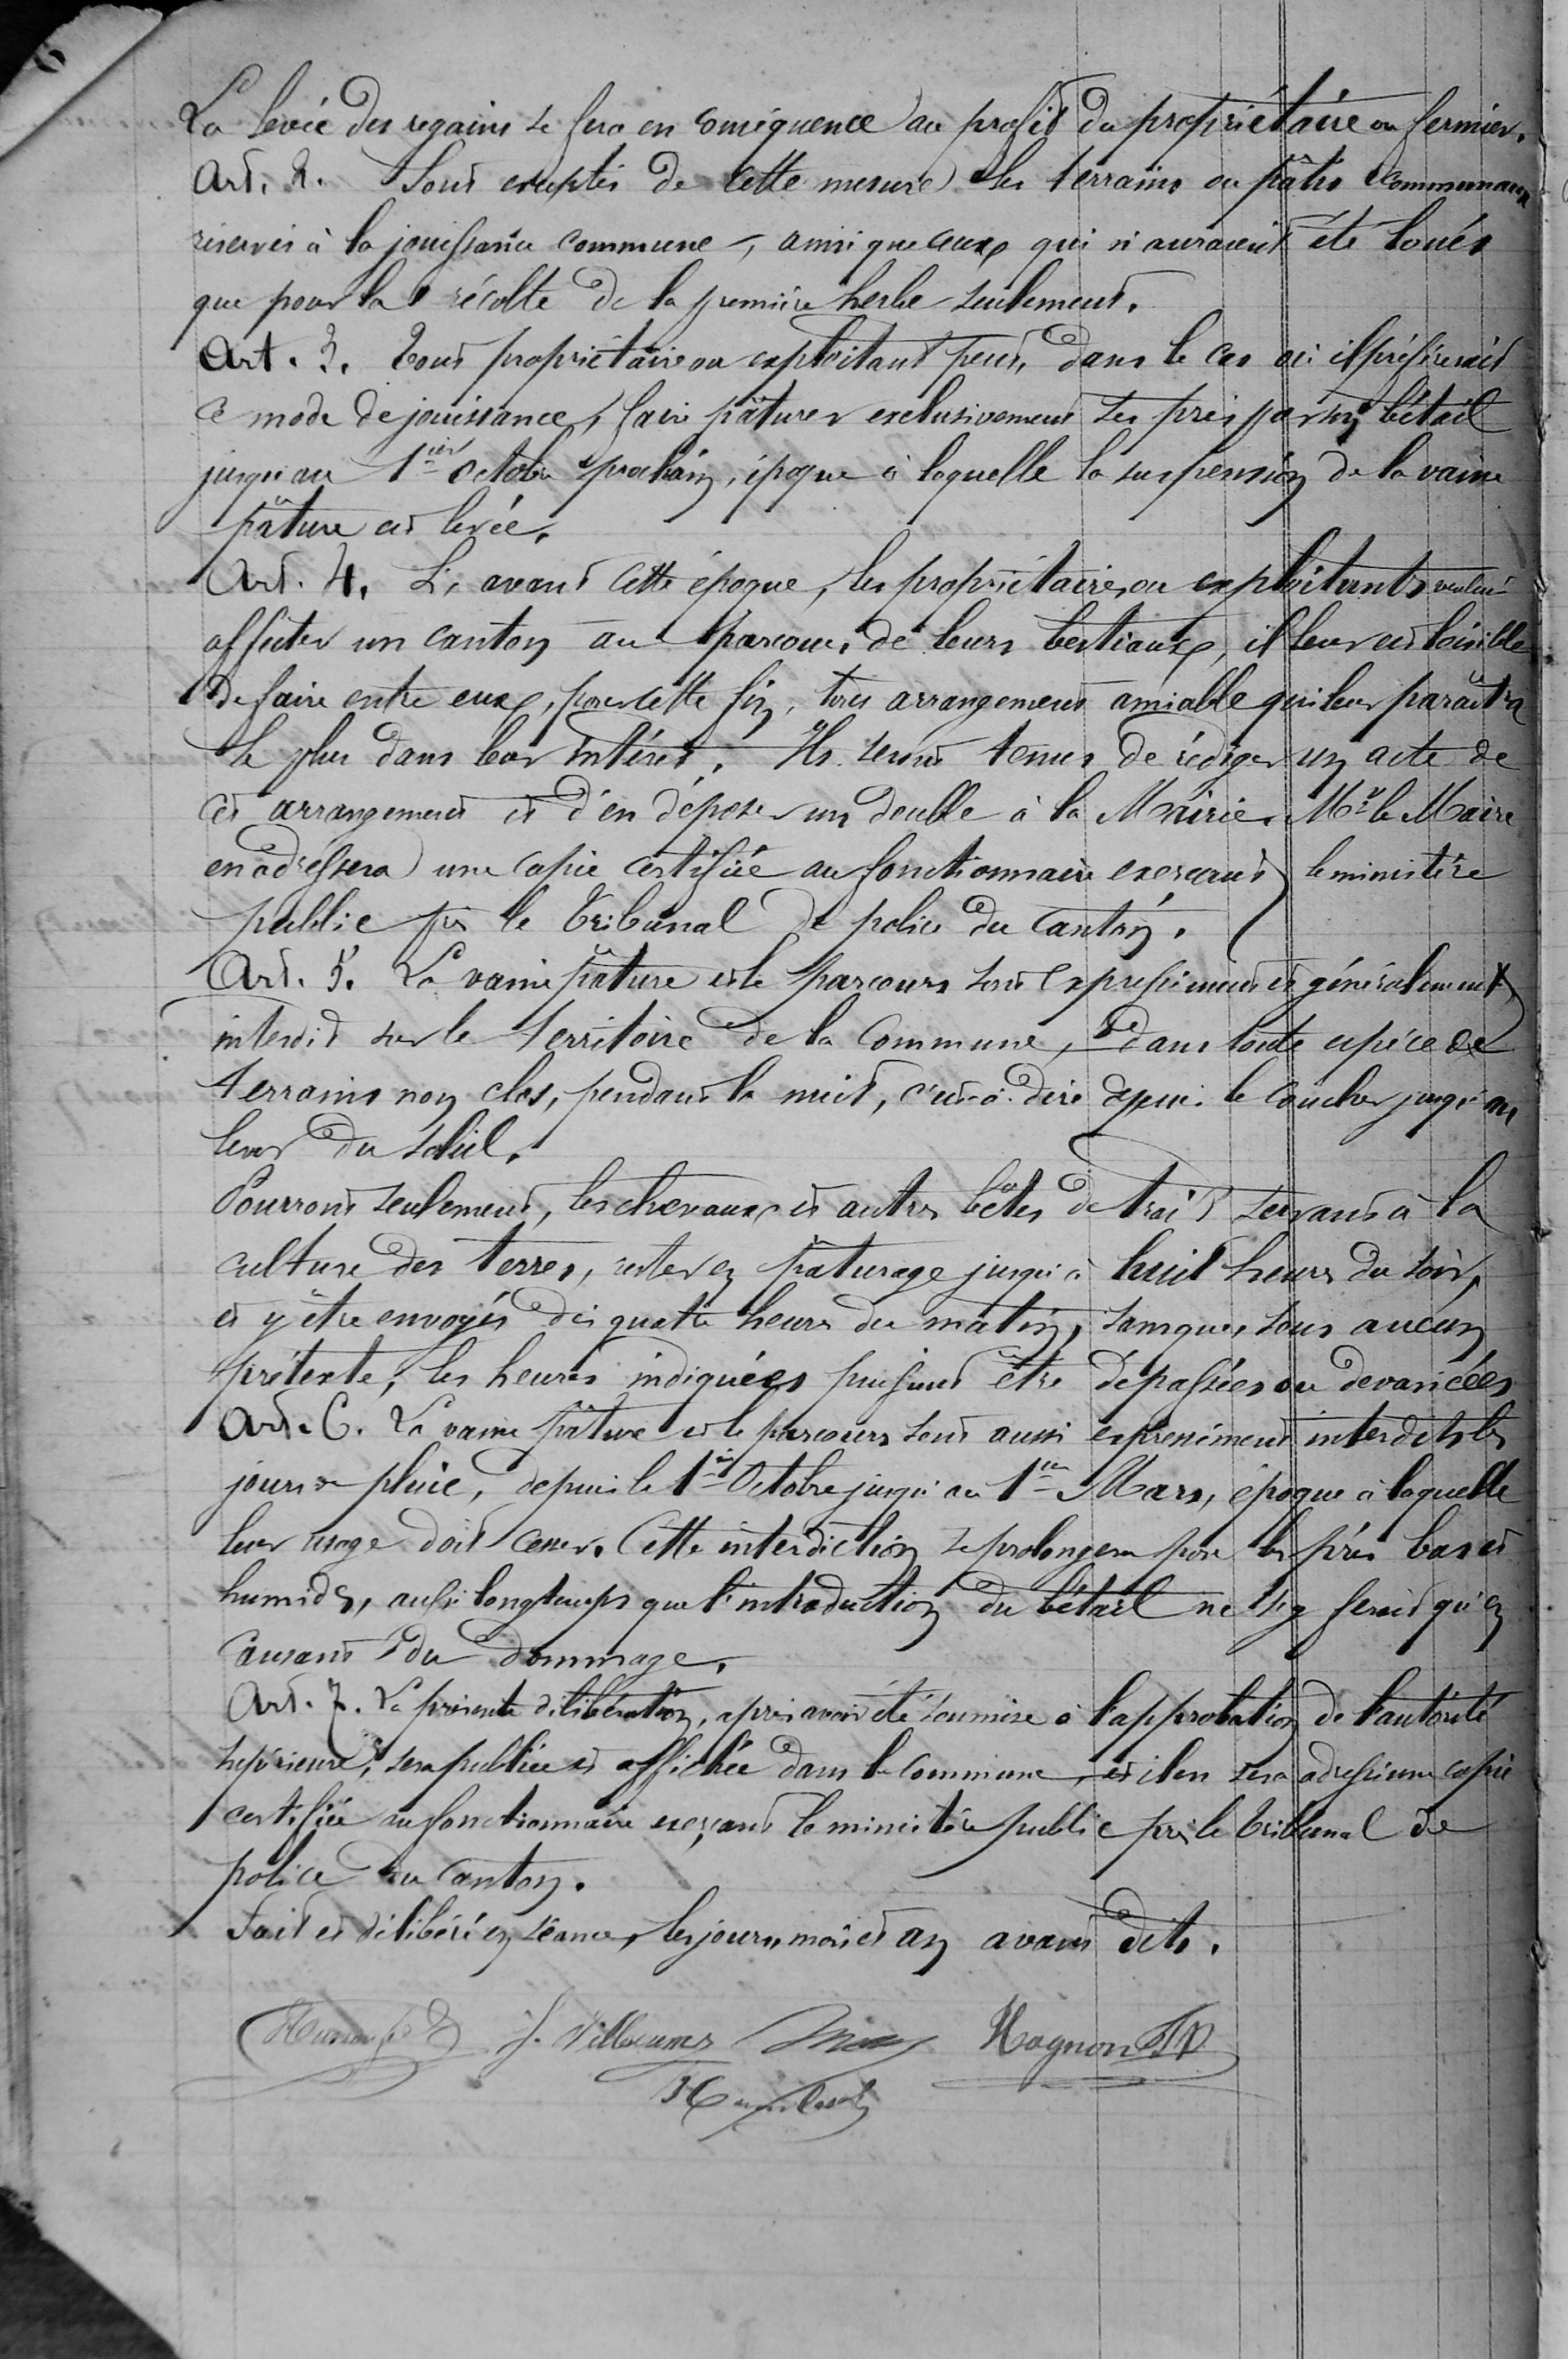 La levée des regains se fera en conséquence au profit du propriétaire ou fermier.
Art. 2. Sont exceptés de cette mesure les terrains ou pâtis communaux
réservés à la jouissance commune, ainsi que ceux qui n'auraient été loués
que pour la récolte de la première herbe seulement.
Art. 3. Tout propriétaire ou exploitant peut, dans le cas où il préférerait
ce mode de jouissance, faire pâturer exclusivement ses prés par son bétail
jusqu'au 1er octobre prochain, époque à laquelle la suspension de la vaine
pâture est levée.
Art. 4. Si, avant cette époque, les propriétaires ou exploitants
affecter un canton au parcours de leurs bestiaux, il leur est loisible
de faire entre eux, pour cette fin, tous arrangement amiable qui leur paraîtra
le plus dans leur intérêt. Ils seront tenus de rédiger un acte de
cet arrangement et d'en déposer un double à la Mairie. Mr le Maire
en adressera une copie certifiée au fonctionnaire exerçant le ministère
public près le Tribunal de police du canton.
Art. 5. La vaine pâture et le parcours sont expressément et généralement
interdit sur le territoire de la Commune, dans toute espèce de
terrains non clos, pendant la nuit, c'est-à-dire depuis le coucher jusqu'au
lever du soleil.
Pourront seulement, les chevaux et autres bêtes de trait servant à la
culture des terres, rester en pâturage jusqu'à huit heures du soir,
et y être envoyés dès quatre heures du matin, sans que, sous aucun
prétexte, les heures indiquées puissent être dépassées ou devancées
Art. 6. La vaine pâture et le parcours sont aussi expressément interdits les
jours de pluie, depuis le 1er Octobre jusqu'au 1er Mars, époque à laquelle
leur usage doit cesser. Cette interdiction se prolongera pour les prés bas et
humides, aussi longtemps que l'introduction du bétail ne s'y ferait qu'en
causant du dommage.
Art. 7. La présente délibération, après avoir été soumise à l'approbation de l'autorité
supérieure, sera publiée et affichée dans la commune, et il en sera adressé une copie
certifiée au fonctionnaire exerçant le ministère public près le tribunal de
police du canton.
Fait et délibéré en séance, les jour, mois et an avant dits.
J. Villaume Hognon